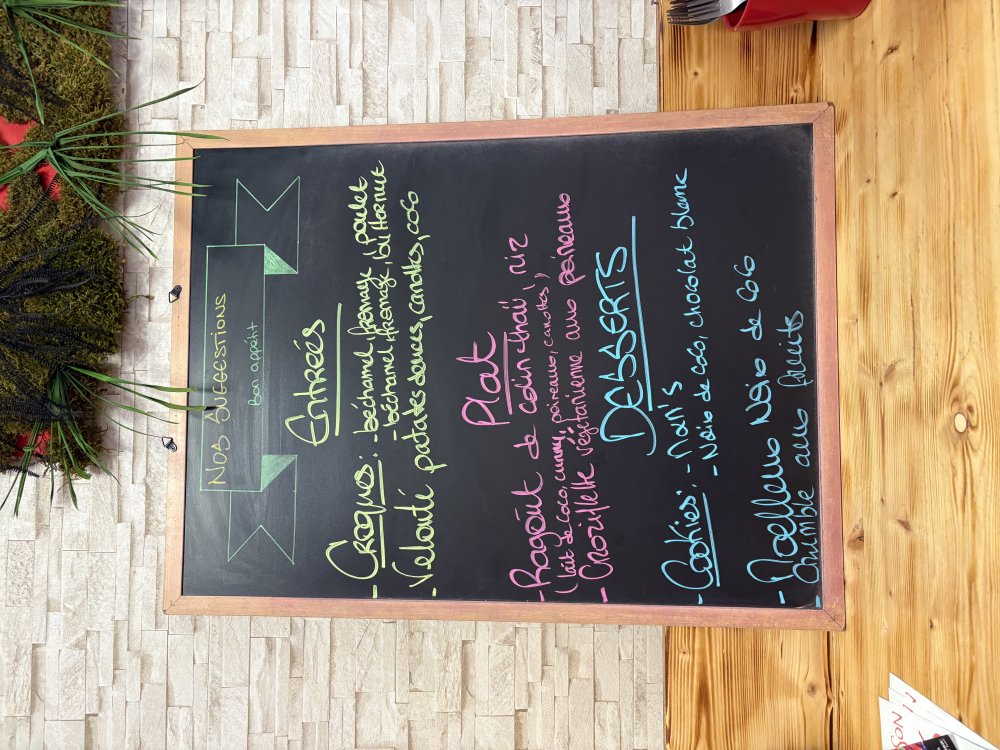 NOS SUGGESTIONS
Bon appétit
Entrées
- Croques: - béchamel, fromage, poulet
- béchamel, fromage, butternut
- Velouté patates douces, carottes, coco
Plat
- Ragoût de colin thaï, riz
(lait de coco, curry, poireaux, carottes)
- Croziflette végétarienne aux poireaux
DESSERTS
- Cookies: - Mars
- Noix de coco, chocolat blanc
- Moelleux Noix de coco
- Crumble aux fruits